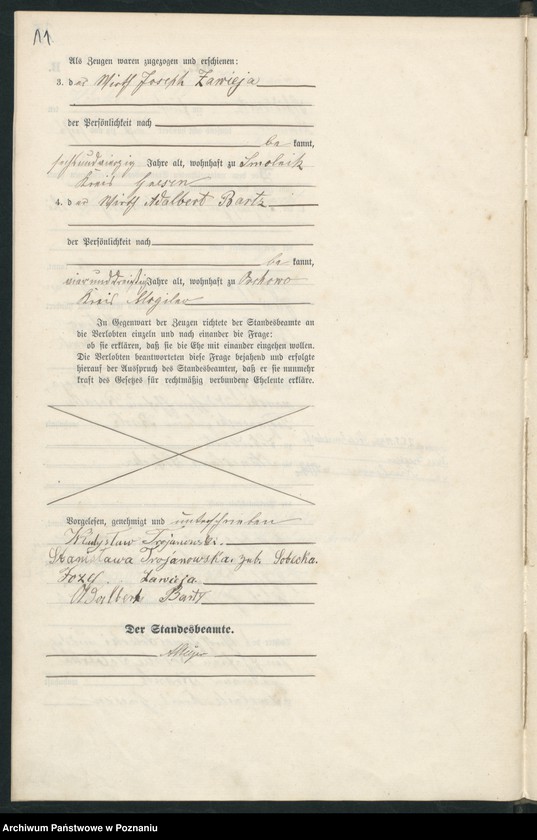 11.
Als Zeugen waren zugezogen und erschienen:
3. der Wirth Joseph Zawieja
der Persönlichkeit nach
be kannt,
sechsundvierzig Jahre alt, wohnhaft zu Smolnik
Kreis Gnesen
4. der Wirth Adalbert Bartz
der Persönlichkeit nach
be kannt,
vierunddreißig Jahre alt, wohnhaft zu
Kreis Mogilno
In Gegenwart der Zeugen richtete der Standesbeamte an
die Verlobten einzeln und nach einander die Frage:
ob sie erklären, daß sie die Ehe mit einander eingehen wollen.
Die Verlobten beantworteten diese Frage bejahend und erfolgte
hierauf der Ausspruch des Standesbeamten, daß er sie nunmehr
kraft des Gesetzes für rechtmäßig verbundene Eheleute erkläre.
Vorgelesen, genehmigt und unterschrieben
Władysław Trojanowski.
Stanisława Trojanowska. geb. Sobecka.
Jozef Zawieja
Adalbert Bartz
Der Standesbeamte.
Archiwum Państwowe w Poznaniu